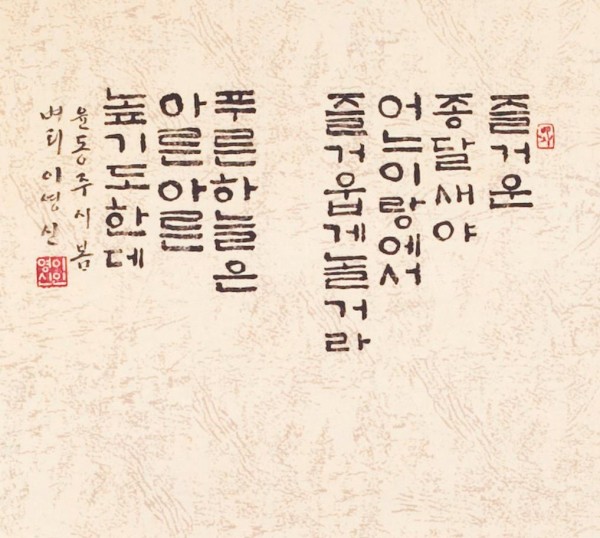 즐거운
종달새야
어느이랑에서
즐거웁게놀거라
푸른하늘은
아른아른
높기도한데
윤동주시봄
이영신
이인
영신